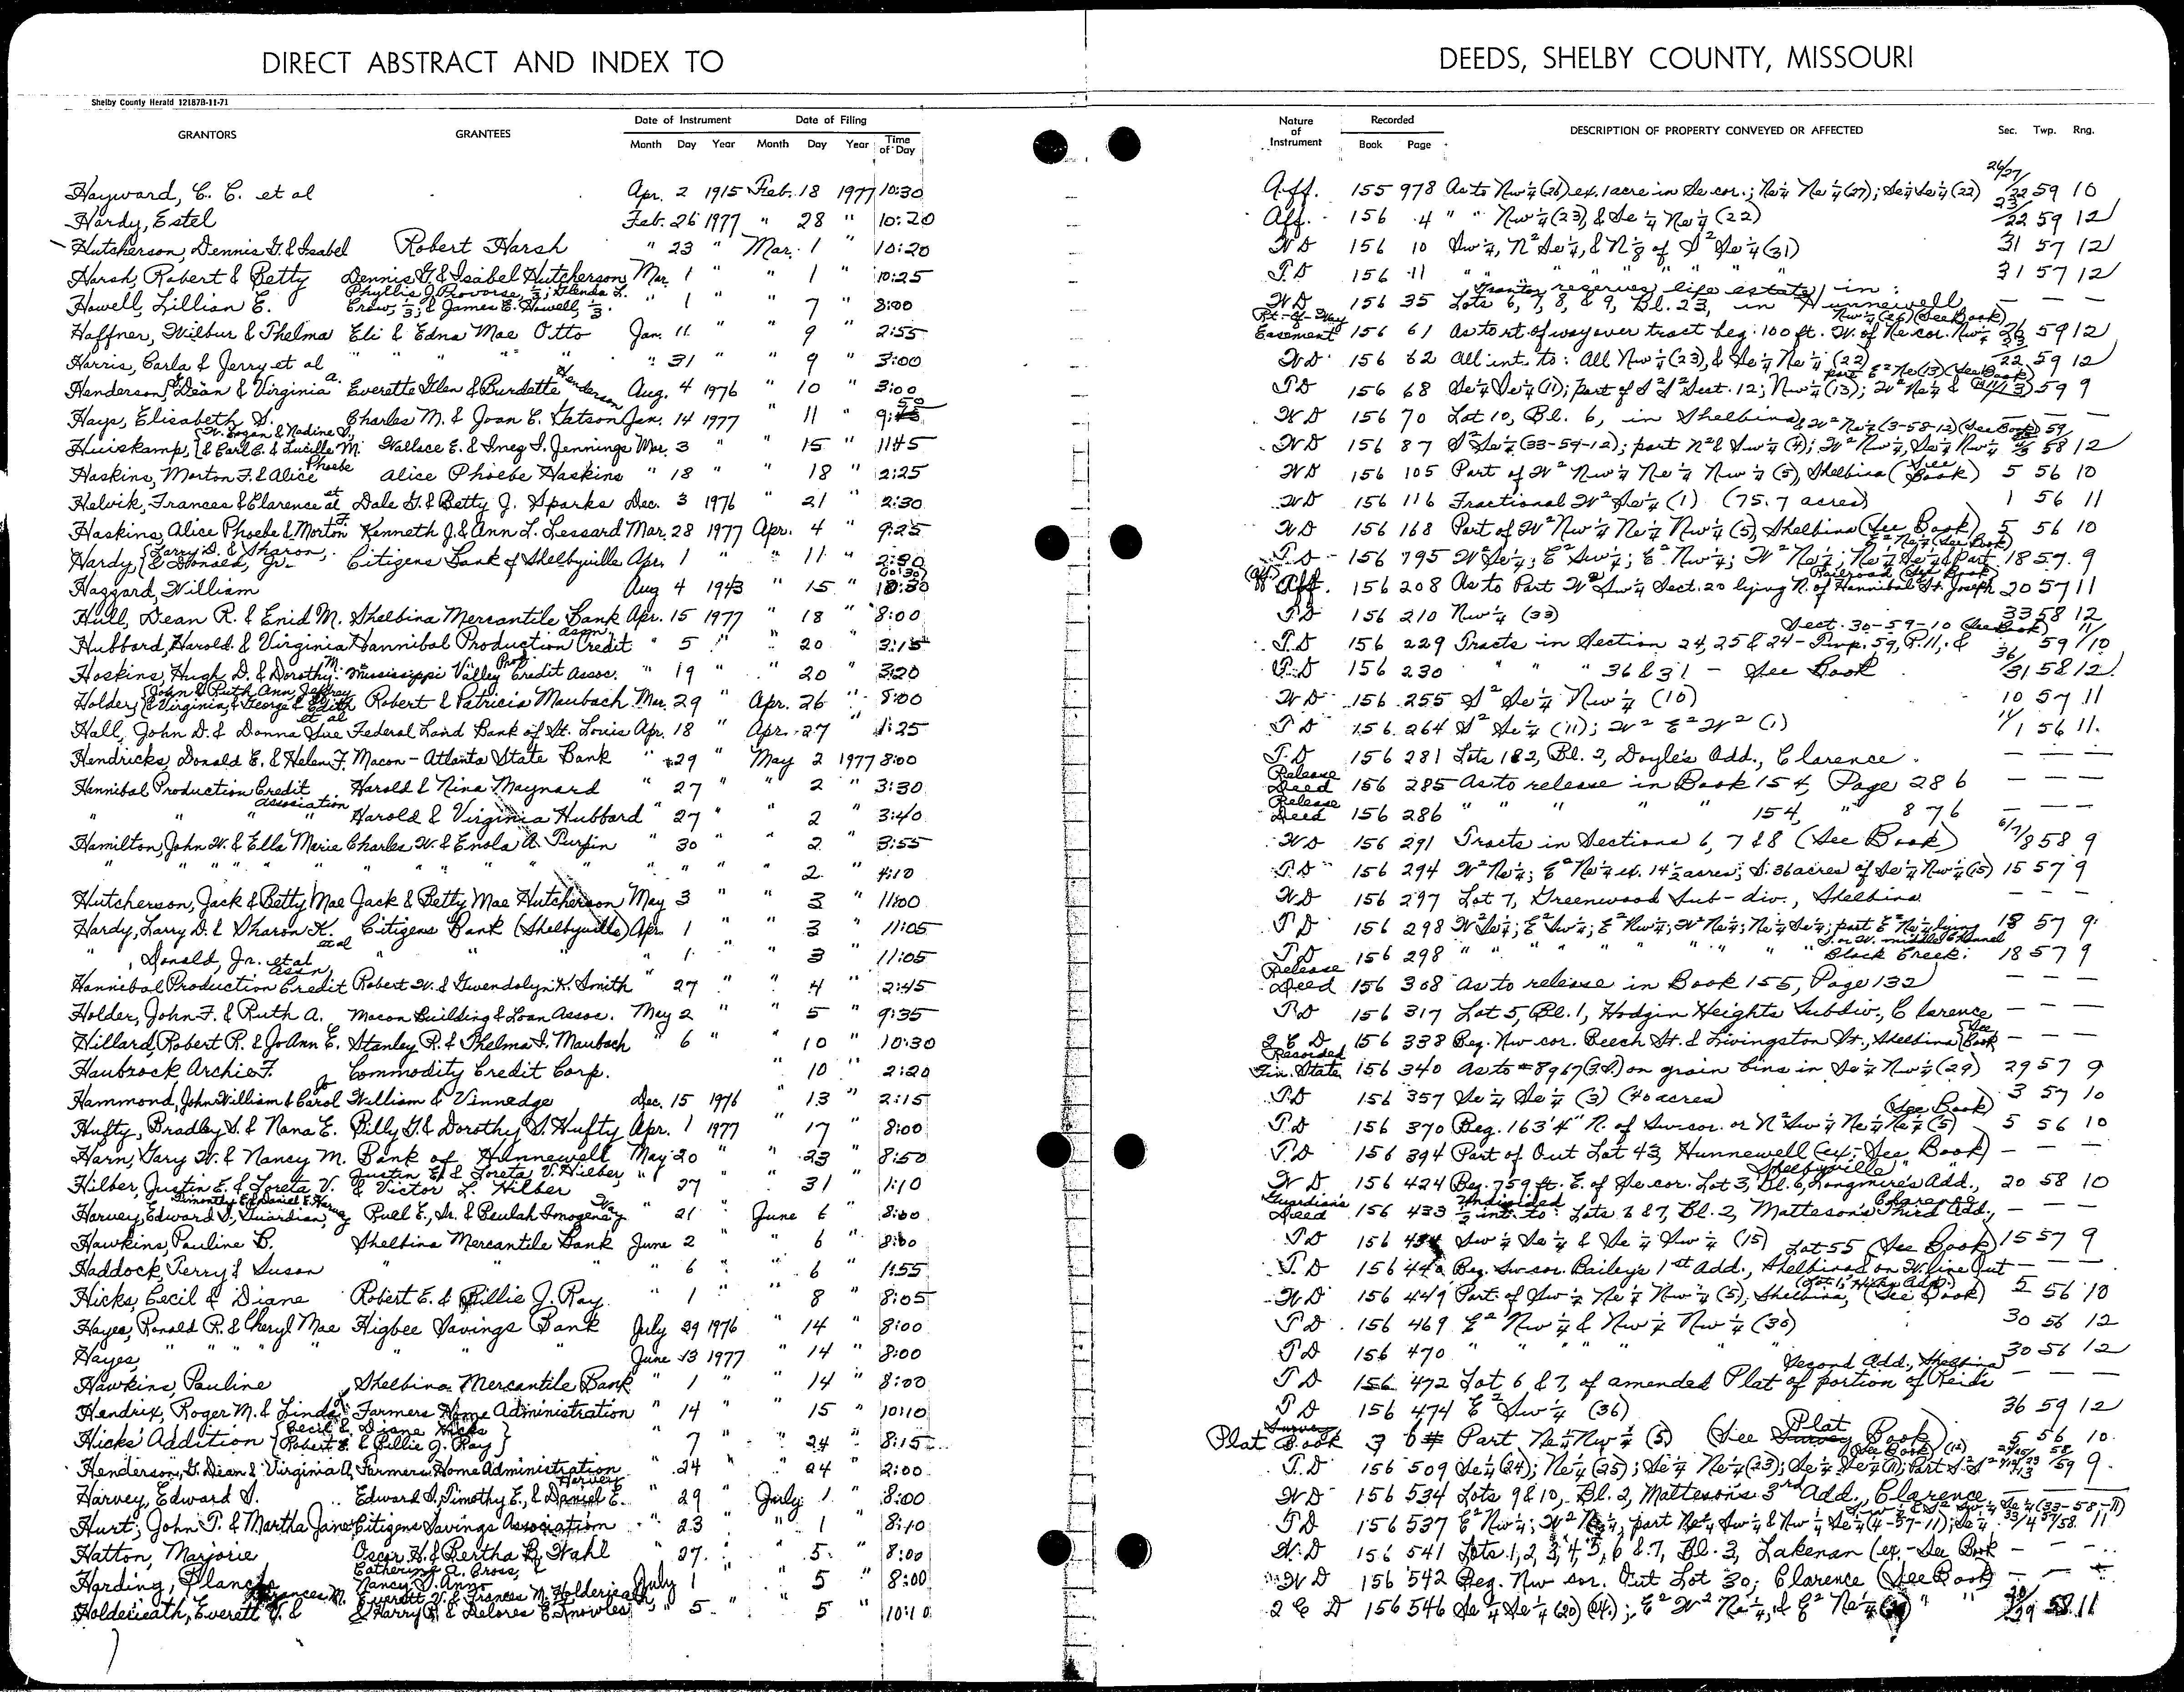 DIRECT ABSTRACT AND INDEX TO DEEDS, SHELBY COUNTY, MISSOURI
Shelby County Herald 12187B-11-71
GRANTORS GRANTEES Date of Instrument Month Day Year Date of Filing Month Day Year Time of Day Nature of Instrument Recorded Book Page DESCRIPTION OF PROPERTY CONVEYED OR AFFECTED Sec. Twp. Rng.
Hayward, C. C. et al Apr. 2 1915 Feb. 18 1977 10:30 Aff. 155 978 As to Nw¼ (26) ex. 1 acre in Se cor.; Ne¼ Ne¼ (27); Se¼ Se¼ (22) 26/27/22 59 10
Hardy, Estel Feb. 26 1977 " 28 " 10:20 Aff. 156 4 " " Nw¼ (23), & Se¼ Ne¼ (22) 23/22 59 12
Hutcherson, Dennis G. & Isabel Robert Harsh " 23 " Mar. 1 " 10:20 WD 156 10 Sw¼, N² Se¼, & N⅓ of S² Se¼ (31) 31 57 12
Harsh, Robert & Betty Dennis G. & Isabel Hutcherson Mar. 1 " " 1 " 10:25 T.D 156 11 " " " " " " " 31 57 12
Howell, Lillian E. Phyllis J. Provorse, ⅓; Glenda L. Crow, ⅓; & James E. Howell, ⅓. " 1 " " 7 " 8:00 WD 156 35 Grantor reserves life estate in: Lots 6, 7, 8, & 9, Bl. 23, in Hunnewell — — —
Haffner, Wilbur & Thelma Eli & Edna Mae Otto Jan. 11 " " 9 " 2:55 Rt-of-Way Easement 156 61 As to rt. of way over tract beg. 100 ft. W. of Ne cor. Nw¼ Nw¼ (26) (See Book) 26 59 12
Harris, Carla & Jerry et al " " " " " " 31 " " 9 " 3:00 WD 156 62 All int. to: All Nw¼ (23), & Se¼ Ne¼ (22) 23/22 59 12
Henderson, G. Dean & Virginia A. Everette Glen & Burdette Henderson Aug. 4 1976 " 10 " 3:00 TD 156 68 Se¼ Se¼ (11); part of S² S² Sect. 12; Nw¼ (13); W² Ne¼ & part E² Ne (13) (See Book) 59 9
Hays, Elisabeth S. Charles M. & Joan C. Watson Jan. 14 1977 " 11 " 9:50 WD 156 70 Lot 10, Bl. 6, in Shelbina — — —
Huiskamp, {W. Logan & Nadine D., & Carl C. & Lucille M. Wallace E. & Inez I. Jennings Mar. 3 " " 15 " 11:45 WD 156 87 S² Se¼ (33-59-12); part N² & Sw¼ (4); W² Nw¼, Se¼ Nw¼ & W² Ne¼ (3-58-12) (See Book) 58 12
Haskins, Morton F. & Alice Phoebe Alice Phoebe Haskins " 18 " " 18 " 2:25 WD 156 105 Part of W² Nw¼ Ne¼ Nw¼ (5), Shelbina (See Book) 5 56 10
Helvik, Frances & Clarence et al Dale G. & Betty J. Sparks Dec. 3 1976 " 21 " 2:30 WD 156 116 Fractional W² Se¼ (1) (75.7 acres) 1 56 11
Haskins, Alice Phoebe & Morton F. Kenneth J. & Ann L. Lessard Mar. 28 1977 Apr. 4 " 9:25 WD 156 168 Part of W² Nw¼ Ne¼ Nw¼ (5), Shelbina (See Book) 5 56 10
Hardy {Larry D. & Sharon, & Donald, Jr. Citizens Bank of Shelbyville Apr. 1 " " 11 " 2:30 T.D 156 195 W² Se¼; E² Sw¼; E² Nw¼; W² Ne¼; Ne¼ Se¼ & Part E² Ne¼ (See Book) 18 57 9
Haggard, William Aug 4 1943 " 15 " 10:30 Aff. 156 208 As to Part W² Sw¼ Sect. 20 lying N. of Hannibal & St. Joseph Railroad (See Book) 20 57 11
Hull, Dean R. & Enid M. Shelbina Mercantile Bank Apr. 15 1977 " 18 " 8:00 T.D 156 210 Nw¼ (33) 33 58 12
Hubbard, Harold & Virginia Hannibal Production Credit Assn. " 5 " " 20 " 3:15 T.D 156 229 Tracts in Section 24, 25 & 24 - Twp. 59, R. 11, & Sect. 30-59-10 (See Book) 59 11/10
Hoskins, Hugh D. & Dorothy M. Mississippi Valley Prod. Credit Assoc. " 19 " " 20 " 3:20 T.D 156 230 " " " 36 & 31 - See Book 36/31 58 12
Holder, {John & Ruth Ann, Jeffrey & Virginia, & George & Edith Robert & Patricia Maubach Mar. 29 " Apr. 26 " 8:00 WD 156 255 S² Se¼ Nw¼ (10) 10 57 11
Hall, John D. & Donna Sue et al Federal Land Bank of St. Louis Apr. 18 " Apr. 27 " 1:25 TD 156 264 S² Se¼ (11); W² E² W² (1) 11/1 56 11
Hendricks, Donald E. & Helen F. Macon-Atlanta State Bank " 29 " May 2 1977 8:00 T.D 156 281 Lots 1 & 2, Bl. 2, Doyle's Add., Clarence — — —
Hannibal Production Credit Association Harold & Nina Maynard " 27 " " 2 " 3:30 Release Deed 156 285 As to release in Book 154, Page 286 — — —
" " " " Harold & Virginia Hubbard " 27 " " 2 " 3:40 Release Deed 156 286 " " " " 154, " 876 — — —
Hamilton, John W. & Ella Marie Charles W. & Enola A. Turpin " 30 " " 2 " 3:55 WD 156 291 Tracts in Sections 6, 7 & 8 (See Book) 6/7/8 58 9
" " " " " " " " " " " " " 2 " 4:10 T.D 156 294 W² Ne¼; E² Ne¼ ex. 14½ acres; S. 36 acres of Se¼ Nw¼ (15) 15 57 9
Hutcherson, Jack & Betty Mae Jack & Betty Mae Hutcherson May 3 " " 3 " 11:00 WD 156 297 Lot 7, Greenwood Sub-div., Shelbina — — —
Hardy, Larry D. & Sharon K. et al Citizens Bank (Shelbyville) Apr. 1 " " 3 " 11:05 TD 156 298 W² Se¼; E² Sw¼; E² Nw¼; W² Ne¼; Ne¼ Se¼; part E² Ne¼ lying S. or W. middle channel Black Creek. 18 57 9
" , Donald, Jr. et al " " " " 1 " " 3 " 11:05 TD 156 298 " " " " " " " " 18 57 9
Hannibal Production Credit Assn. Robert W. & Gwendolyn K. Smith " 27 " " 4 " 2:45 Release Deed 156 308 As to release in Book 155, Page 132 — — —
Holder, John F. & Ruth A. Macon Building & Loan Assoc. May 2 " " 5 " 9:35 TD 156 317 Lot 5, Bl. 1, Hodgin Heights Subdiv., Clarence — — —
Hillard, Robert R. & JoAnn E. Stanley R. & Thelma I. Maubach " 6 " " 10 " 10:30 Q C D 156 338 Beg. Nw cor. Beech St. & Livingston St., Shelbina (See Book — — —
Haubrock Archie F. Commodity Credit Corp. " 10 " 2:20 Recorded Fin. State. 156 340 As to #8967 (38) on grain bins in Se¼ Nw¼ (29) 29 57 9
Hammond, John William & Carol Jo William & Vinnedge Dec. 15 1976 " 13 " 2:15 T.D 156 357 Se¼ Se¼ (3) (40 acres) 3 57 10
Hufty, Bradley S. & Nana E. Billy G. & Dorothy S. Hufty Apr. 1 1977 " 17 " 8:00 T.D 156 370 Beg. 163'4" N. of Sw cor. or N² Sw¼ Ne¼ Ne¼ (5) (See Book) 5 56 10
Harn, Gary W. & Nancy M. Bank of Hunnewell May 20 " " 23 " 8:50 T.D 156 394 Part of Out Lot 43, Hunnewell (ex.-See Book) — — —
Hilber, Justin E. & Loreta V. Justin E. & Loreta V. Hilber, & Victor L. Hilber " 27 " " 31 " 1:10 WD 156 424 Beg. 759 ft. E. of Se cor. Lot 3, Bl. 6, Longmire's Add., Shelbyville 20 58 10
Harvey, Edward S., Guardian, Timothy E. & Daniel E. Harvey Ruel E., Sr. & Beulah Imogene Way " 21 " June 6 " 8:00 Guardian's Deed 156 433 Undivided ½ int. to: Lots 6 & 7, Bl. 2, Matteson's Third Add., Clarence — — —
Hawkins, Pauline B. Shelbina Mercantile Bank June 2 " " 6 " 8:00 TD 156 434 Sw¼ Se¼ & Se¼ Sw¼ (15) 15 57 9
Haddock, Terry & Susan " " " " 6 " " 6 " 1:55 T.D 156 440 Beg. Sw cor. Bailey's 1st Add., Shelbina & on W. line Out Lot 55 (See Book) — — —
Hicks, Cecil & Diane Robert E. & Billie J. Ray " 1 " " 8 " 8:05 WD 156 449 Part of Sw¼ Ne¼ Nw¼ (5), Shelbina, (See Book) (Lot 1, Hicks Add.) 5 56 10
Hayes, Ronald R. & Cheryl Mae Higbee Savings Bank July 29 1976 " 14 " 8:00 TD 156 469 E² Nw¼ & Nw¼ Nw¼ (30) 30 56 12
Hayes, " " " " " " " June 13 1977 " 14 " 8:00 TD 156 470 " " " " " 30 56 12
Hawkins, Pauline Shelbina Mercantile Bank " 1 " " 14 " 8:00 TD 156 472 Lot 6 & 7, of amended Plat of portion of Reid's Second Add., Shelbina — — —
Hendrix, Roger M. & Linda Farmers Home Administration " 14 " " 15 " 10:10 TD 156 474 E² Sw¼ (36) 36 59 12
Hicks' Addition {Cecil & Diane Hicks Robert E. & Billie J. Ray} " 7 " " 24 " 8:15 Plat Book 3 6 Part Ne¼ Nw¼ (5) (See Plat Book) 5 56 10
Henderson, G. Dean & Virginia A. Farmers Home Administration " 24 " " 24 " 2:00 T.D 156 509 Se¼ (24); Ne¼ (25); Se¼ Ne¼ (23); Se¼ Se¼ (11); Part S² S² (12) (See Book) 58/59 9
Harvey, Edward S. Edward S., Timothy E., & Daniel E. Harvey " 29 " July 1 " 8:00 WD 156 534 Lots 9 & 10, Bl. 2, Matteson's 3rd Add., Clarence — — —
Hurt, John T. & Martha Jane Citizens Savings Association " 23 " " 1 " 8:10 TD 156 537 E² Nw¼; W² Ne¼, part Ne¼ Sw¼ & Nw¼ Se¼ (4-57-11); Se¼ Sw¼ & S² Sw¼ Se¼ (33-58-11) 33/4 57/58 11
Hatton, Marjorie Oscar H. & Bertha B. Wahl " 27 " " 5 " 8:00 W.D 156 541 Lots 1, 2, 3, 4, 5, 6 & 7, Bl. 3, Lakenan (ex.-See Book — — —
Harding, Blanche Catherine A. Cross, & Nancy S. Ann July 1 " " 5 " 8:00 WD 156 542 Beg. Nw cor. Out Lot 30; Clarence (See Book) — — —
Holderieath, Everett V. & Frances M. Everett V. & Frances M. Holderieath & Harry R. & Delores E. Knowles " 5 " " 5 " 10:10 Q C D 156 546 Se¼ Se¼ (20); E² W² Ne¼, & E² Ne¼ (29) " " 20/29 58 11